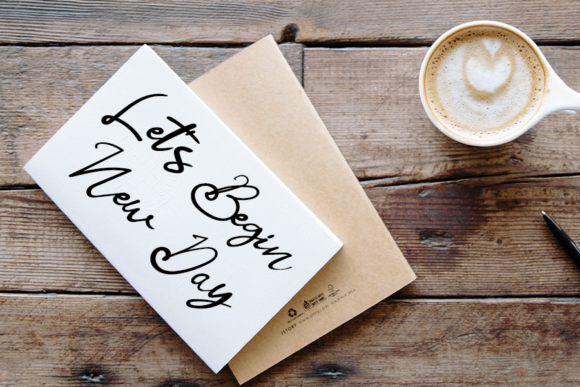 Let's Begin
New Day